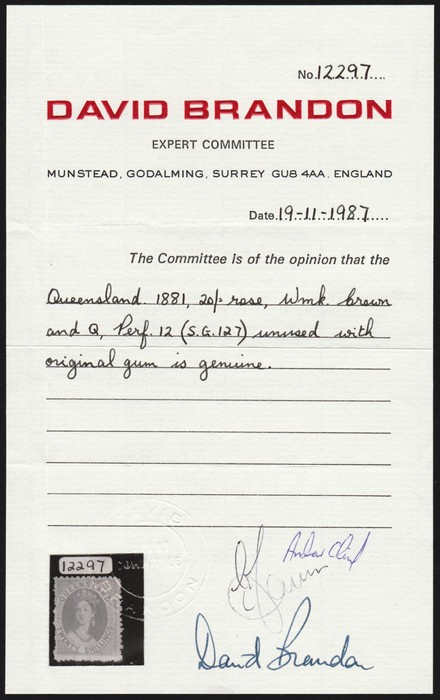 No. 12297....
DAVID BRANDON
EXPERT COMMITTEE
MUNSTEAD, GODALMING, SURREY GU8 4AA. ENGLAND
Date. 19-11-1987....
The Committee is of the opinion that the
Queensland. 1881, 20/- rose, Wmk. Crown
and Q, Perf. 12 (S.G.127) unused with
original gum is genuine.
12297
David Brandon